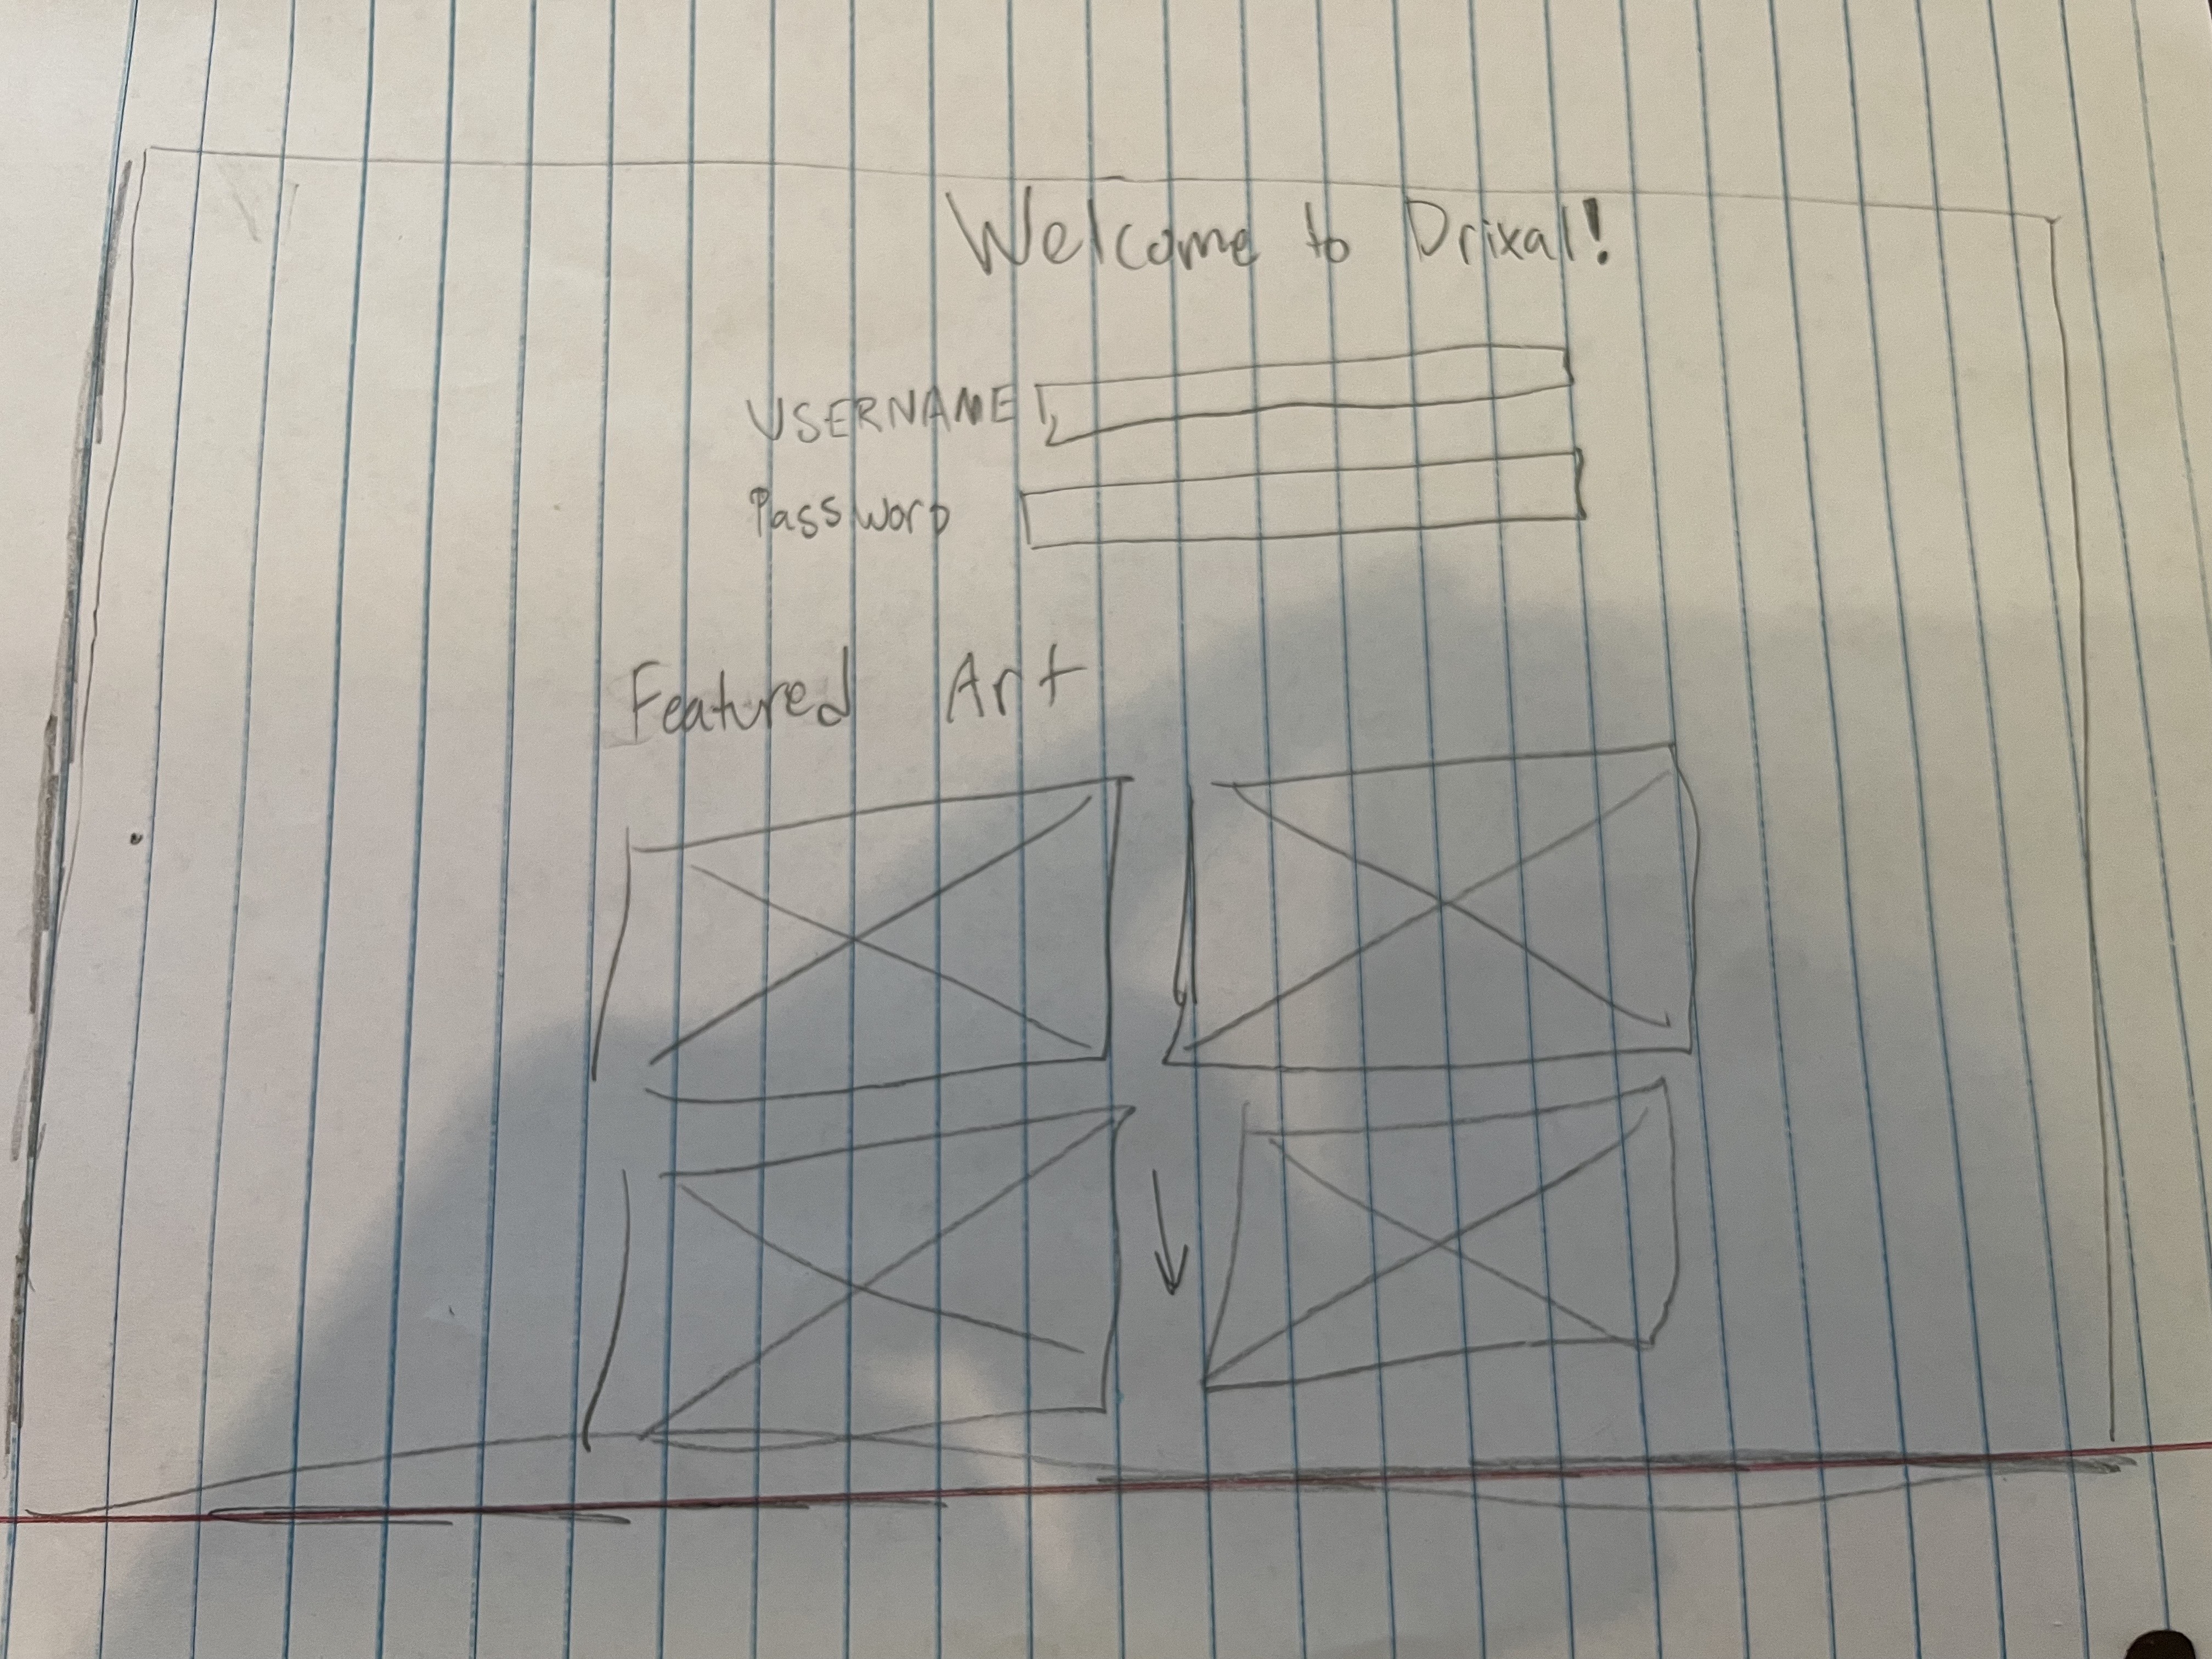 Welcome to Drixal!
USERNAME
Password
Featured Art